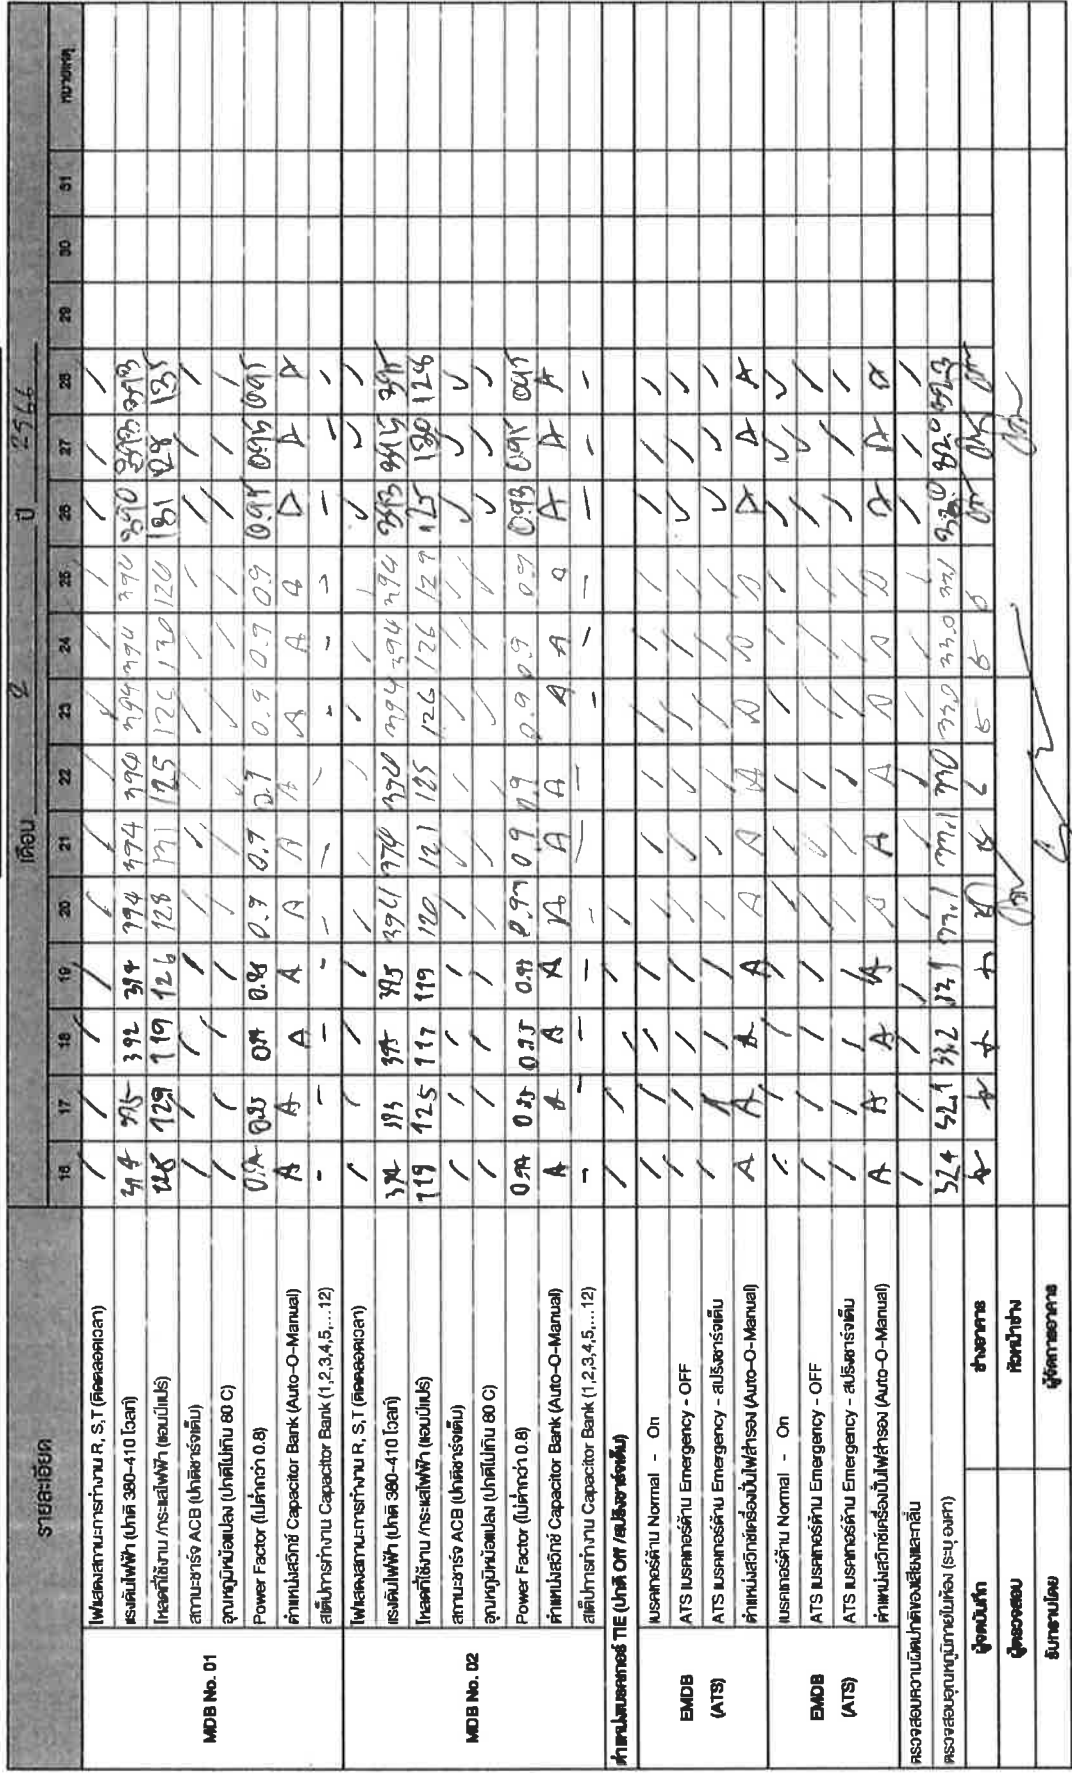 เดือน 2 ปี 2566
รายละเอียด 16 17 18 19 20 21 22 23 24 25 26 27 28 29 30 31 หมายเหตุ
MDB No. 01
ไฟแสดงสถานะการทำงาน R, S,T (ติดตลอดเวลา) / / / / / / / / / / / / /
แรงดันไฟฟ้า (ปกติ 380-410 โวลท์) 394 395 392 394 394 394 390 394 394 390 390 393 393
โหลดที่ใช้งาน /กระแสไฟฟ้า (แอมป์แปร์) 128 129 119 126 128 131 125 126 130 120 131 128 135
สถานะชาร์จ ACB (ปกติชาร์จเต็ม) / / / / / / / / / / / / /
อุณหภูมิหม้อแปลง (ปกติไม่เกิน 80 C) / / / / / / / / / / / / /
Power Factor (ไม่ต่ำกว่า 0.8) 0.95 0.9 0.9 0.9 0.9 0.9 0.9 0.95 0.95
ตำแหน่งสวิทช์ Capacitor Bank (Auto-O-Manual) A A A A A A A A A A A A A
สเต็ปการทำงาน Capacitor Bank (1,2,3,4,5,...12) - - - - - - - - - - - - -
MDB No. 02
ไฟแสดงสถานะการทำงาน R, S,T (ติดตลอดเวลา) / / / / / / / / / / / / /
แรงดันไฟฟ้า (ปกติ 380-410 โวลท์) 394 393 395 395 394 394 394 393 395 395
โหลดที่ใช้งาน /กระแสไฟฟ้า (แอมป์แปร์) 119 125 117 119 120 121 125 126 126 129 125 130 128
สถานะชาร์จ ACB (ปกติชาร์จเต็ม) / / / / / / / / / / / / /
อุณหภูมิหม้อแปลง (ปกติไม่เกิน 80 C) / / / / / / / / / / / / /
Power Factor (ไม่ต่ำกว่า 0.8) 0.95 0.9 0.9 0.9 0.9 0.9 0.93 0.95 0.95
ตำแหน่งสวิทช์ Capacitor Bank (Auto-O-Manual) A A A A A A A A A A A A A
สเต็ปการทำงาน Capacitor Bank (1,2,3,4,5,...12) - - - - - - - - - - - - -
ตำแหน่งเบรคเกอร์ TIE (ปกติ Off /สปริงชาร์จเต็ม) / / / / /
EMDB (ATS)
เบรคเกอร์ด้าน Normal - On / / / / / / / / / / / / /
ATS เบรคเกอร์ด้าน Emergency - OFF / / / / / / / / / / / / /
ATS เบรคเกอร์ด้าน Emergency - สปริงชาร์จเต็ม / / / / / / / / / / / / /
ตำแหน่งสวิทช์เครื่องปั่นไฟสำรอง (Auto-O-Manual) A A A A A A A A A A A A A
EMDB (ATS)
เบรคเกอร์ด้าน Normal - On / / / / / / / / / / / / /
ATS เบรคเกอร์ด้าน Emergency - OFF / / / / / / / / / / / / /
ATS เบรคเกอร์ด้าน Emergency - สปริงชาร์จเต็ม / / / / / / / / / / / / /
ตำแหน่งสวิทช์เครื่องปั่นไฟสำรอง (Auto-O-Manual) A A A A A A A A A A A A A
ตรวจสอบความผิดปกติของเสียงและกลิ่น / / / / / / / / / / / / /
ตรวจสอบอุณหภูมิภายในห้อง (ระบุ องศา) 32.4 32.1 33.2 32.9 33.1 33.1 33.0 33.0 33.0 33.1 32.0 32.0 32.3
ผู้จดบันทึก ช่างอาคาร
ผู้ตรวจสอบ หัวหน้าช่าง
รับทราบโดย ผู้จัดการอาคาร